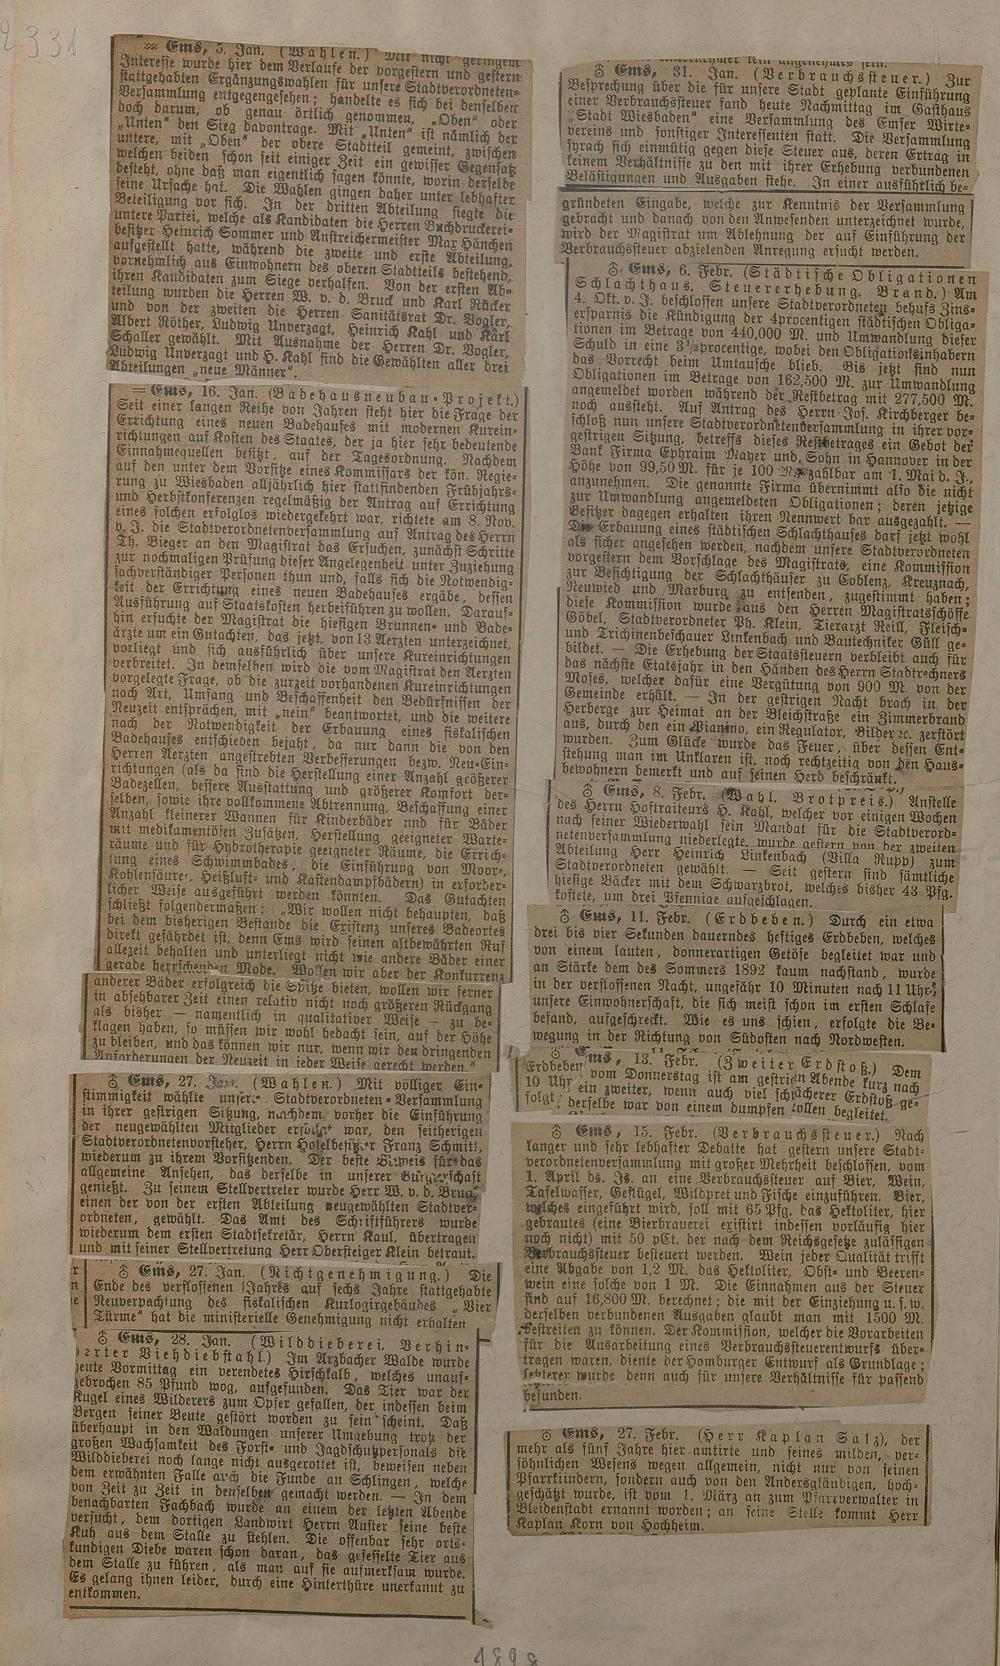 2331
Ems, 5. Jan. (Wahlen.) Mit nicht geringem
Interesse wurde hier dem Verlaufe der vorgestern und gestern
stattgehabten Ergänzungswahlen für unsere Stadtverordneten-
Versammlung entgegengesehen; handelte es sich bei denselben
doch darum, ob genau örtlich genommen, „Oben" oder
„Unten" den Sieg davontrage. Mit „Unten" ist nämlich der
untere, mit „Oben" der obere Stadtteil gemeint, zwischen
welchen beiden schon seit einiger Zeit ein gewisser Gegensatz
besteht, ohne daß man eigentlich sagen könnte, worin derselbe
seine Ursache hat. Die Wahlen gingen daher unter lebhafter
Beteiligung vor sich. In der dritten Abteilung siegte die
untere Partei, welche als Kandidaten die Herren Buchdruckerei-
besitzer Heinrich Sommer und Anstreichermeister Max Hänchen
aufgestellt hatte, während die zweite und erste Abteilung,
vornehmlich aus Einwohnern des oberen Stadtteils bestehend,
ihren Kandidaten zum Siege verhalfen. Von der ersten Ab-
teilung wurden die Herren W. v. d. Bruck und Karl Rücker
und von der zweiten die Herren Sanitätsrat Dr. Vogler,
Albert Röther, Ludwig Unverzagt, Heinrich Kahl und Karl
Schaller gewählt. Mit Ausnahme der Herren Dr. Vogler,
Ludwig Unverzagt und H. Kahl sind die Gewählten aller drei
Abteilungen „neue Männer".
= Ems, 16. Jan. (Badehausneubau-Projekt.)
Seit einer langen Reihe von Jahren steht hier die Frage der
Errichtung eines neuen Badehauses mit modernen Kurein-
richtungen auf Kosten des Staates, der ja hier sehr bedeutende
Einnahmequellen besitzt, auf der Tagesordnung. Nachdem
auf den unter dem Vorsitze eines Kommissars der kön. Regie-
rung zu Wiesbaden alljährlich hier stattfindenden Frühjahrs-
und Herbstkonferenzen regelmäßig der Antrag auf Errichtung
eines solchen erfolglos wiedergekehrt war, richtete am 8. Nov.
v. J. die Stadtverordnetenversammlung auf Antrag des Herrn
Th. Bieger an den Magistrat das Ersuchen, zunächst Schritte
zur nochmaligen Prüfung dieser Angelegenheit unter Zuziehung
sachverständiger Personen thun und, falls sich die Notwendig-
keit der Errichtung eines neuen Badehauses ergäbe, dessen
Ausführung auf Staatskosten herbeiführen zu wollen. Darauf-
hin ersuchte der Magistrat die hiesigen Brunnen- und Bade-
ärzte um ein Gutachten, das jetzt, von 13 Aerzten unterzeichnet,
vorliegt und sich ausführlich über unsere Kureinrichtungen
verbreitet. In demselben wird die vom Magistrat den Aerzten
vorgelegte Frage, ob die zurzeit vorhandenen Kureinrichtungen
nach Art, Umfang und Beschaffenheit den Bedürfnissen der
Neuzeit entsprächen, mit „nein" beantwortet, und die weitere
nach der Notwendigkeit der Erbauung eines fiskalischen
Badehauses entschieden bejaht, da nur dann die von den
Herren Aerzten angestrebten Verbesserungen bezw. Neu-Ein-
richtungen (als da sind die Herstellung einer Anzahl größerer
Badezellen, bessere Ausstattung und größerer Komfort der-
selben, sowie ihre vollkommene Abtrennung, Beschaffung einer
Anzahl kleinerer Wannen für Kinderbäder und für Bäder
mit medikamentösen Zusätzen, Herstellung geeigneter Warte-
räume und für Hydrotherapie geeigneter Räume, die Errich-
tung eines Schwimmbades, die Einführung von Moor-,
Kohlensäure-, Heißluft- und Kastendampfbädern) in erforder-
licher Weise ausgeführt werden könnten. Das Gutachten
schließt folgendermaßen: „Wir wollen nicht behaupten, daß
bei dem bisherigen Bestande die Existenz unseres Badeortes
direkt gefährdet ist, denn Ems wird seinen altbewährten Ruf
allezeit behalten und unterliegt nicht wie andere Bäder einer
gerade herrschenden Mode. Wollen wir aber der Konkurrenz
anderer Bäder erfolgreich die Spitze bieten, wollen wir ferner
in absehbarer Zeit einen relativ nicht noch größeren Rückgang
als bisher — namentlich in qualitativer Weise — zu be-
klagen haben, so müssen wir wohl bedacht sein, auf der Höhe
zu bleiben, und das können wir nur, wenn wir den dringenden
Anforderungen der Neuzeit in jeder Weise gerecht werden."
Ems, 27. Jan. (Wahlen.) Mit völliger Ein-
stimmigkeit wählte unsere Stadtverordneten-Versammlung
in ihrer gestrigen Sitzung, nachdem vorher die Einführung
der neugewählten Mitglieder erfolgt war, den seitherigen
Stadtverordnetenvorsteher, Herrn Hotelbesitzer Franz Schmitt,
wiederum zu ihrem Vorsitzenden. Der beste Beweis für das
allgemeine Ansehen, das derselbe in unserer Bürgerschaft
genießt. Zu seinem Stellvertreter wurde Herr W. v. d. Bruck,
einen der von der ersten Abteilung neugewählten Stadtver-
ordneten, gewählt. Das Amt des Schriftführers wurde
wiederum dem ersten Stadtsekretär, Herrn Kaul, übertragen
und mit seiner Stellvertretung Herr Obersteiger Klein betraut.
Ems, 27. Jan. (Nichtgenehmigung.) Die
Ende des verflossenen Jahres auf sechs Jahre stattgehabte
Neuverpachtung des fiskalischen Kurlogirgebäudes „Vier
Türme" hat die ministerielle Genehmigung nicht erhalten
Ems, 28. Jan. (Wilddieberei. Verhin-
derter Viehdiebstahl.) Im Arzbacher Walde wurde
heute Vormittag ein verendetes Hirschkalb, welches unauf-
gebrochen 85 Pfund wog, aufgefunden. Das Tier war der
Kugel eines Wilderers zum Opfer gefallen, der indessen beim
Bergen seiner Beute gestört worden zu sein scheint. Daß
überhaupt in den Waldungen unserer Umgebung trotz der
großen Wachsamkeit des Forst- und Jagdschutzpersonals die
Wilddieberei noch lange nicht ausgerottet ist, beweisen neben
dem erwähnten Falle auch die Funde an Schlingen, welche
von Zeit zu Zeit in denselben gemacht werden. — In dem
benachbarten Fachbach wurde an einem der letzten Abende
versucht, dem dortigen Landwirt Herrn Auster seine beste
Kuh aus dem Stalle zu stehlen. Die offenbar sehr orts-
kundigen Diebe waren schon daran, das gefesselte Tier aus
dem Stalle zu führen, als man auf sie aufmerksam wurde.
Es gelang ihnen leider, durch eine Hinterthüre unerkannt zu
entkommen.
Ems, 31. Jan. (Verbrauchssteuer.) Zur
Besprechung über die für unsere Stadt geplante Einführung
einer Verbrauchssteuer fand heute Nachmittag im Gasthaus
„Stadt Wiesbaden" eine Versammlung des Emser Wirte-
vereins und sonstiger Interessenten statt. Die Versammlung
sprach sich einmütig gegen diese Steuer aus, deren Ertrag in
keinem Verhältnisse zu den mit ihrer Erhebung verbundenen
Belästigungen und Ausgaben stehe. In einer ausführlich be-
gründeten Eingabe, welche zur Kenntnis der Versammlung
gebracht und danach von den Anwesenden unterzeichnet wurde,
wird der Magistrat um Ablehnung der auf Einführung der
Verbrauchssteuer abzielenden Anregung ersucht werden.
Ems, 6. Febr. (Städtische Obligationen
Schlachthaus. Steuererhebung. Brand.) Am
4. Okt. v. J. beschlossen unsere Stadtverordneten behufs Zins-
ersparnis die Kündigung der 4procentigen städtischen Obliga-
tionen im Betrage von 440,000 M. und Umwandlung dieser
Schuld in eine 3½procentige, wobei den Obligationsinhabern
das Vorrecht beim Umtausche blieb. Bis jetzt sind nun
Obligationen im Betrage von 162,500 M. zur Umwandlung
angemeldet worden während der Restbetrag mit 277,500 M.
noch aussteht. Auf Antrag des Herrn Jos. Kirchberger be-
schloß nun unsere Stadtverordnetenversammlung in ihrer vor-
gestrigen Sitzung, betreffs dieses Restbetrages ein Gebot der
Bank Firma Ephraim Mayer und Sohn in Hannover in der
Höhe von 99,50 M. für je 100 M. zahlbar am 1. Mai d. J.,
anzunehmen. Die genannte Firma übernimmt also die nicht
zur Umwandlung angemeldeten Obligationen; deren jetzige
Besitzer dagegen erhalten ihren Nennwert bar ausgezahlt. —
Die Erbauung eines städtischen Schlachthauses darf jetzt wohl
als sicher angesehen werden, nachdem unsere Stadtverordneten
vorgestern dem Vorschlage des Magistrats, eine Kommission
zur Besichtigung der Schlachthäuser zu Coblenz, Kreuznach,
Neuwied und Marburg zu entsenden, zugestimmt haben;
diese Kommission wurde aus den Herren Magistratsschöffe
Göbel, Stadtverordneter Ph. Klein, Tierarzt Reill, Fleisch-
und Trichinenbeschauer Linkenbach und Bautechniker Güll ge-
bildet. — Die Erhebung der Staatssteuern verbleibt auch für
das nächste Etatsjahr in den Händen des Herrn Stadtrechners
Moses, welcher dafür eine Vergütung von 900 M. von der
Gemeinde erhält. — In der gestrigen Nacht brach in der
Herberge zur Heimat an der Bleichstraße ein Zimmerbrand
aus, durch den ein Pianino, ein Regulator, Bilder 2c. zerstört
wurden. Zum Glücke wurde das Feuer, über dessen Ent-
stehung man im Unklaren ist, noch rechtzeitig von den Haus-
bewohnern bemerkt und auf seinen Herd beschränkt.
Ems, 8. Febr. (Wahl. Brotpreis.) Anstelle
des Herrn Hoftraiteurs H. Kahl, welcher vor einigen Wochen
nach seiner Wiederwahl sein Mandat für die Stadtverord-
netenversammlung niederlegte, wurde gestern von der zweiten
Abteilung Herr Heinrich Linkenbach (Villa Rupp) zum
Stadtverordneten gewählt. — Seit gestern sind sämtliche
hiesige Bäcker mit dem Schwarzbrot, welches bisher 43 Pfg.
kostete, um drei Pfennige aufgeschlagen.
Ems, 11. Febr. (Erdbeben.) Durch ein etwa
drei bis vier Sekunden dauerndes heftiges Erdbeben, welches
von einem lauten, donnerartigen Getöse begleitet war und
an Stärke dem des Sommers 1892 kaum nachstand, wurde
in der verflossenen Nacht, ungefähr 10 Minuten nach 11 Uhr,
unsere Einwohnerschaft, die sich meist schon im ersten Schlafe
befand, aufgeschreckt. Wie es uns schien, erfolgte die Be-
wegung in der Richtung von Südosten nach Nordwesten.
Ems, 13. Febr. (Zweiter Erdstoß.) Dem
Erdbeben vom Donnerstag ist am gestrigen Abende kurz nach
10 Uhr ein zweiter, wenn auch viel schwächerer Erdstoß ge-
folgt; derselbe war von einem dumpfen Rollen begleitet.
Ems, 15. Febr. (Verbrauchssteuer.) Nach
langer und sehr lebhafter Debatte hat gestern unsere Stadt-
verordnetenversammlung mit großer Mehrheit beschlossen, vom
1. April ds. Js. an eine Verbrauchssteuer auf Bier, Wein,
Tafelwasser, Geflügel, Wildpret und Fische einzuführen. Bier,
welches eingeführt wird, soll mit 65 Pfg. das Hektoliter, hier
gebrautes (eine Bierbrauerei existirt indessen vorläufig hier
noch nicht) mit 50 pCt. der nach dem Reichsgesetze zulässigen
Verbrauchssteuer besteuert werden. Wein jeder Qualität trifft
eine Abgabe von 1,2 M. das Hektoliter, Obst- und Beeren-
wein eine solche von 1 M. Die Einnahmen aus der Steuer
sind auf 16,800 M. berechnet; die mit der Einziehung u. s. w.
derselben verbundenen Ausgaben glaubt man mit 1500 M.
bestreiten zu können. Der Kommission, welcher die Vorarbeiten
für die Ausarbeitung eines Verbrauchssteuerentwurfs über-
tragen waren, diente der Homburger Entwurf als Grundlage;
letzterer wurde denn auch für unsere Verhältnisse für passend
befunden.
Ems, 27. Febr. (Herr Kaplan Salz), der
mehr als fünf Jahre hier amtirte und seines milden, ver-
söhnlichen Wesens wegen allgemein, nicht nur von seinen
Pfarrkindern, sondern auch von den Andersgläubigen, hoch-
geschätzt wurde, ist vom 1. März an zum Pfarrverwalter in
Bleidenstadt ernannt worden; an seine Stelle kommt Herr
Kaplan Korn von Hochheim.
1898